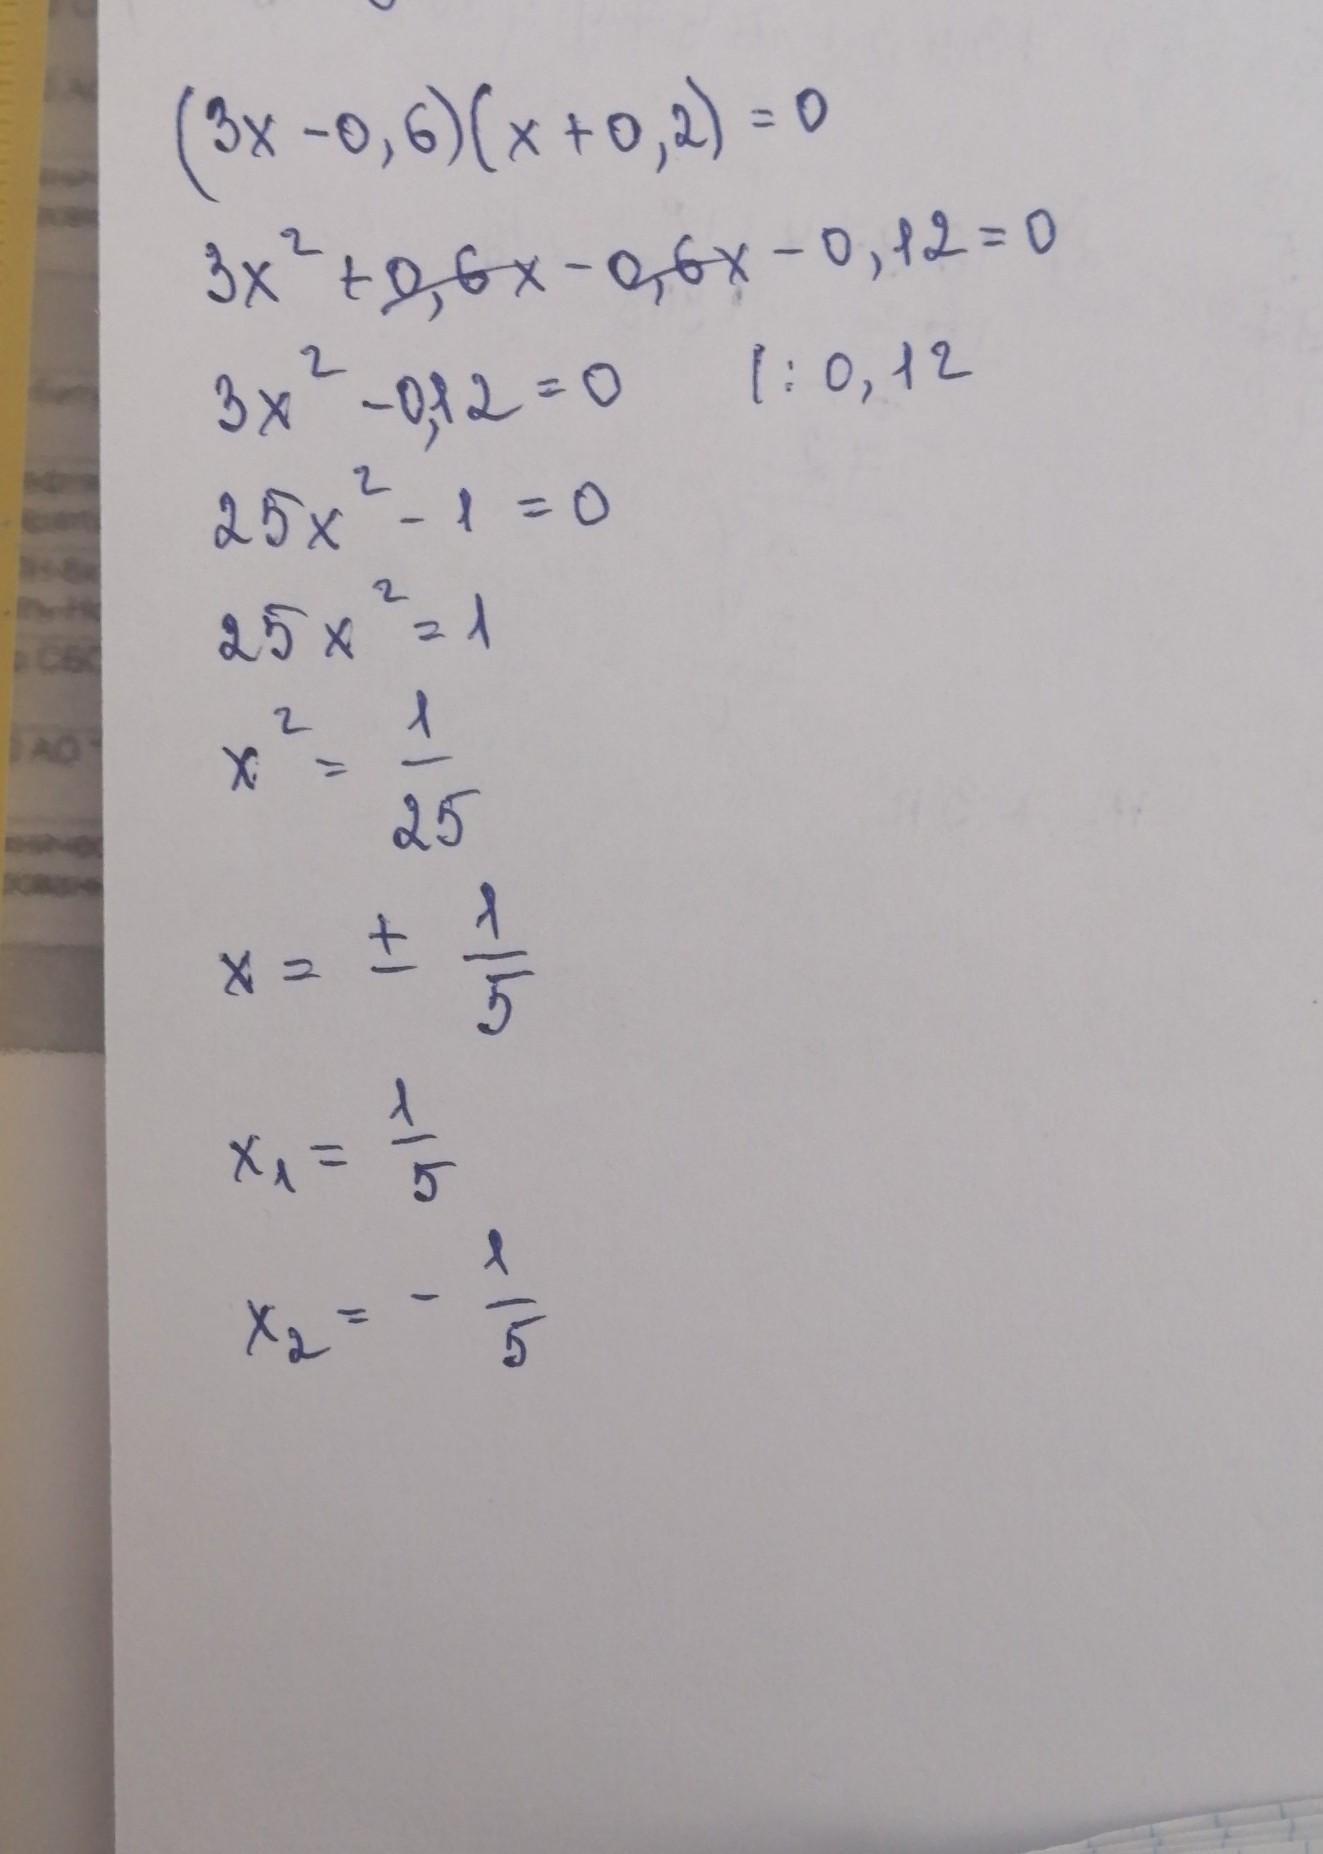 (3x-0,6)(x+0,2)=0
3x²+0,6x-0,6x-0,12=0
3x²-0,12=0 |:0,12
25x²-1=0
25x²=1
x²=1/25
x=±1/5
x₁=1/5
x₂=-1/5